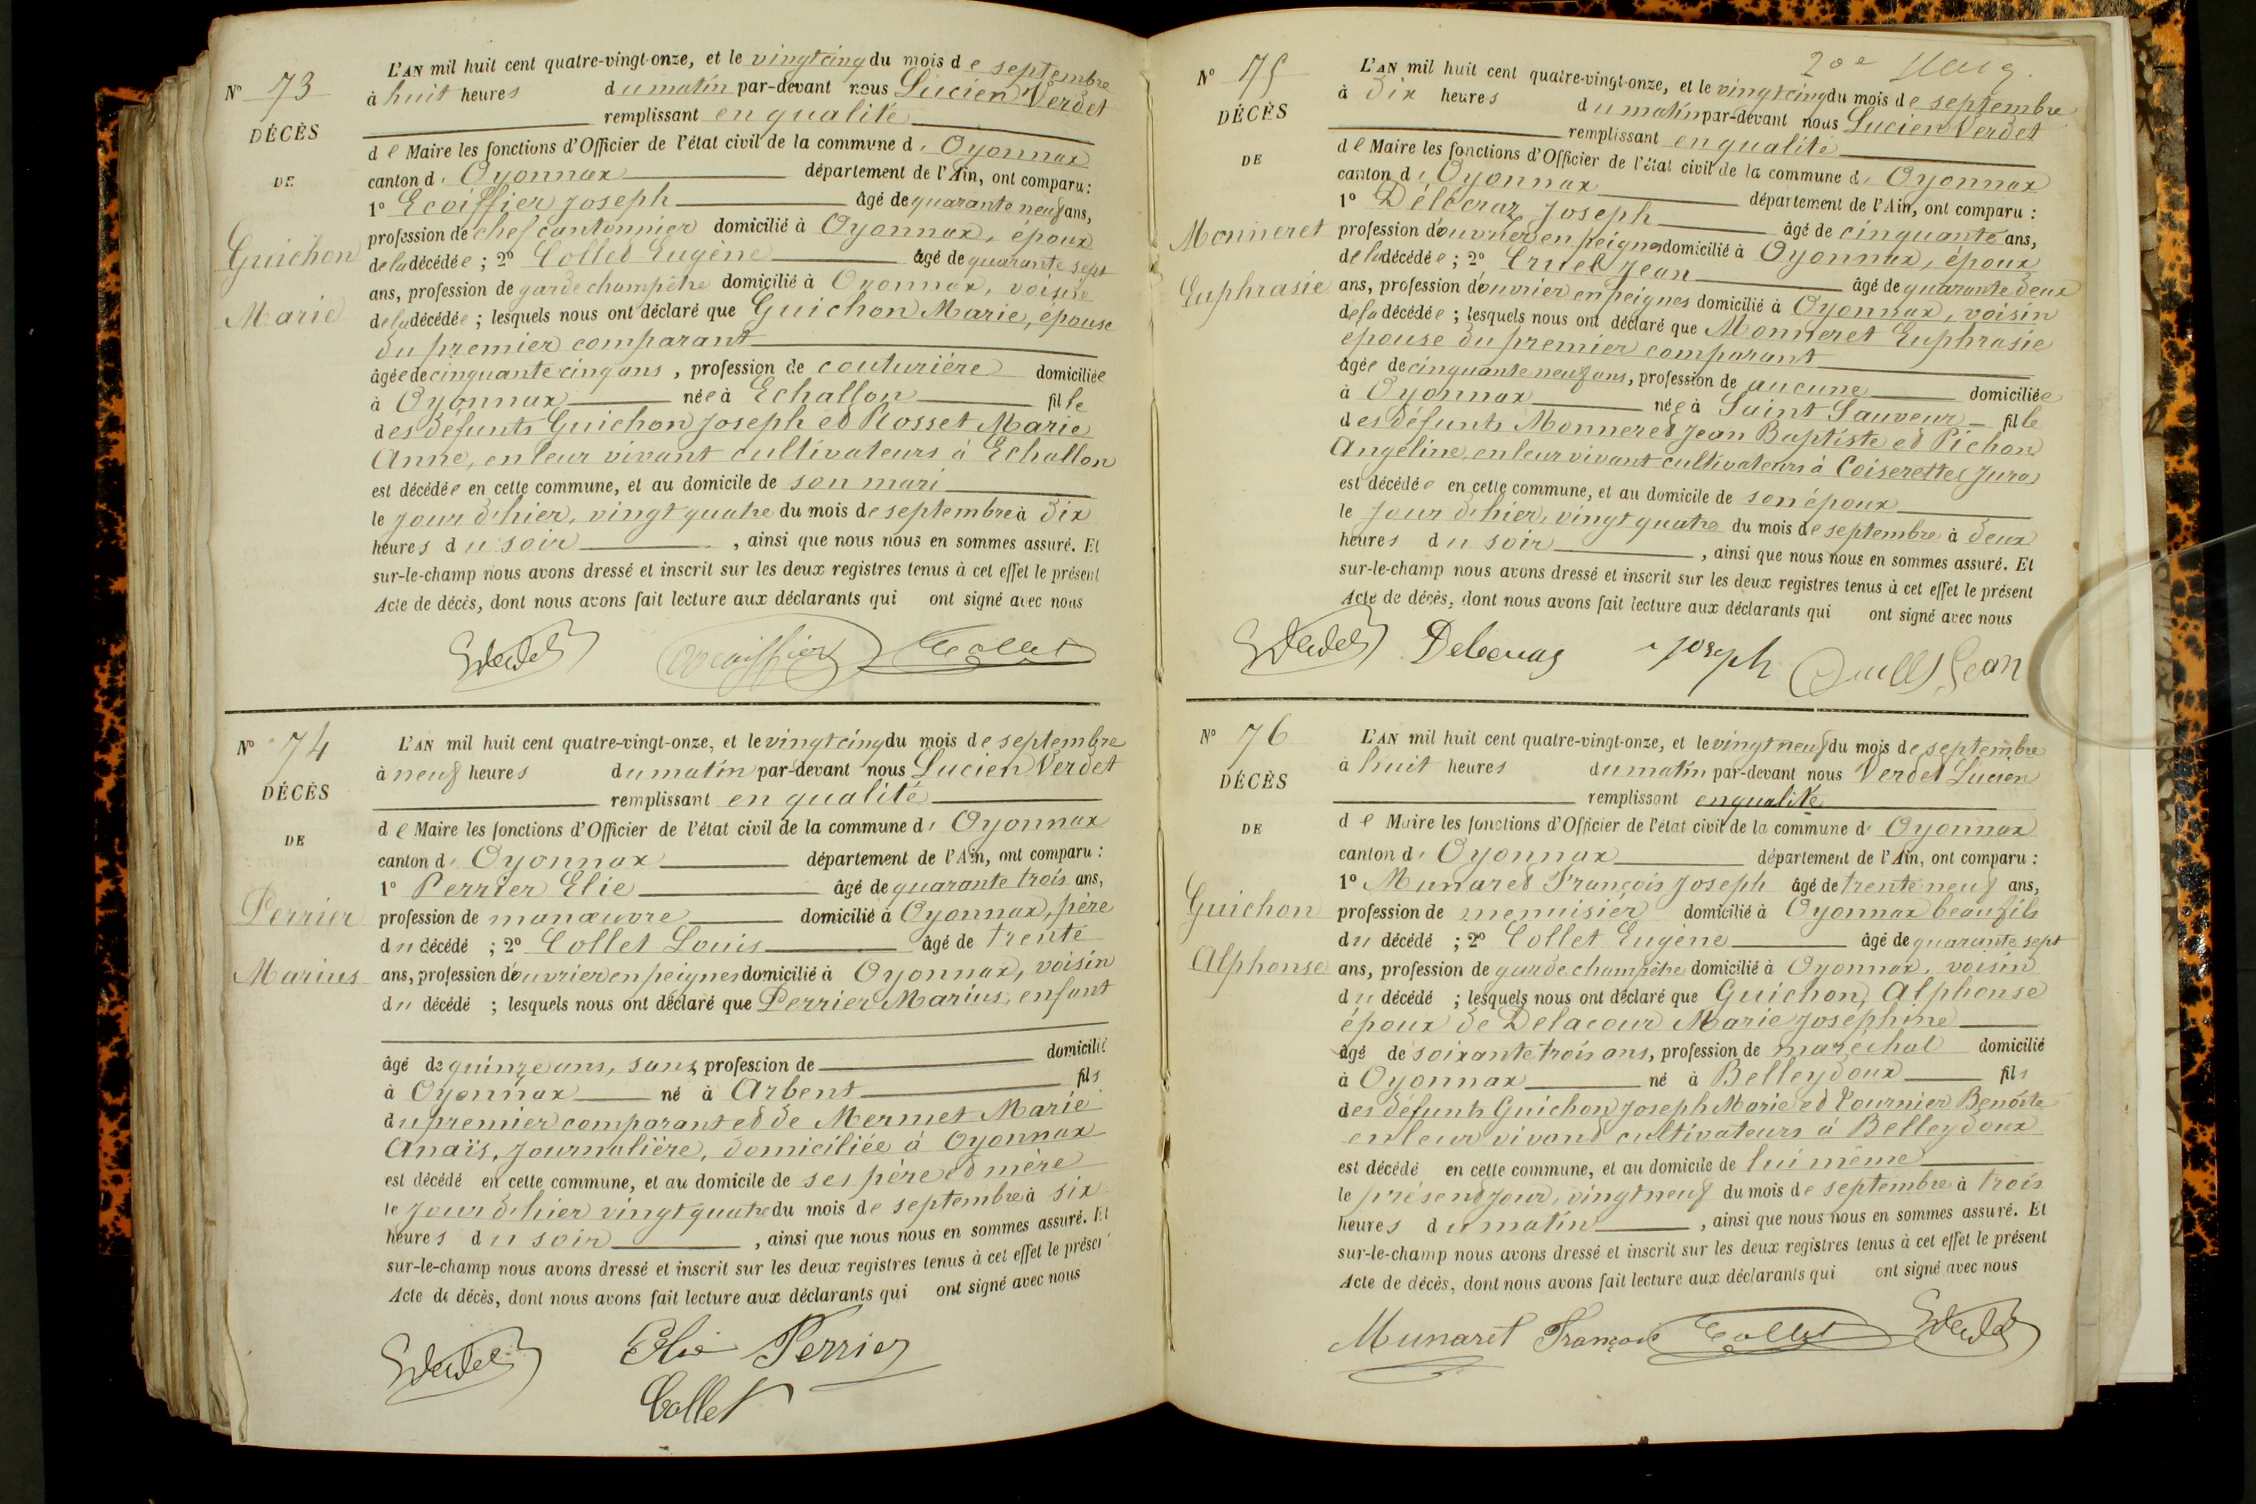 N° 73
DÉCÈS
DE
Guichon
Marie
L'AN mil huit cent quatre-vingt-onze, et le vingt cinq du mois de septembre
à huit heures du matin par-devant nous Lucien Verdet
remplissant en qualité
de Maire les fonctions d'Officier de l'état civil de la commune d' Oyonnax
canton d' Oyonnax département de l'Ain, ont comparu :
1° Ecoiffier Joseph âgé de quarante neuf ans,
profession de chef cantonnier domicilié à Oyonnax, époux
de la décédée ; 2° Collet Eugène âgé de quarante sept
ans, profession de garde champêtre domicilié à Oyonnax, voisin
de la décédée ; lesquels nous ont déclaré que Guichon Marie, épouse
du premier comparant
âgée de cinquante cinq ans, profession de couturière domiciliée
à Oyonnax née à Echallon fille
des défunts Guichon Joseph et Rosset Marie
Anne, en leur vivant cultivateurs à Echallon
est décédée en cette commune, et au domicile de son mari
le jour d'hier, vingt quatre du mois de septembre à dix
heures du soir , ainsi que nous nous en sommes assuré. Et
sur-le-champ nous avons dressé et inscrit sur les deux registres tenus à cet effet le présent
Acte de décès, dont nous avons fait lecture aux déclarants qui ont signé avec nous
Ecoiffier Collet
N° 74
DÉCÈS
DE
Perrier
Marius
L'AN mil huit cent quatre-vingt-onze, et le vingt cinq du mois de septembre
à neuf heures du matin par-devant nous Lucien Verdet
remplissant en qualité
de Maire les fonctions d'Officier de l'état civil de la commune d' Oyonnax
canton d' Oyonnax département de l'Ain, ont comparu :
1° Perrier Elie âgé de quarante trois ans,
profession de manœuvre domicilié à Oyonnax, père
du décédé ; 2° Collet Louis âgé de trente
ans, profession d'ouvrier en peignes domicilié à Oyonnax, voisin
du décédé ; lesquels nous ont déclaré que Perrier Marius, enfant
âgé de quinze ans, sans profession de domicilié
à Oyonnax né à Arbent fils
du premier comparant et de Mermet Marie
Anaïs, journalière, domiciliée à Oyonnax
est décédé en cette commune, et au domicile de ses père et mère
le jour d'hier vingt quatre du mois de septembre à six
heures du soir , ainsi que nous nous en sommes assuré. Et
sur-le-champ nous avons dressé et inscrit sur les deux registres tenus à cet effet le présen
Acte de décès, dont nous avons fait lecture aux déclarants qui ont signé avec nous
Elie Perrier
Collet
N° 75
DÉCÈS
DE
Monneret
Euphrasie
L'AN mil huit cent quatre-vingt-onze, et le vingt cinq du mois de septembre
à dix heures du matin par-devant nous Lucien Verdet
remplissant en qualité
de Maire les fonctions d'Officier de l'état civil de la commune d' Oyonnax
canton d' Oyonnax département de l'Ain, ont comparu :
1° Délécraz Joseph âgé de cinquante ans,
profession d'ouvrier en peignes domicilié à Oyonnax, époux
de la décédée ; 2° Cruel Jean âgé de quarante deux
ans, profession d'ouvrier en peignes domicilié à Oyonnax, voisin
de la décédée ; lesquels nous ont déclaré que Monneret Euphrasie
épouse du premier comparant
âgée de cinquante neuf ans, profession de aucune domiciliée
à Oyonnax née à Saint Sauveur fille
des défunts Monneret Jean Baptiste et Pichon
Angéline, en leur vivant cultivateurs à Coiserette (Jura)
est décédée en cette commune, et au domicile de son époux
le jour d'hier, vingt quatre du mois de septembre à deux
heures du soir , ainsi que nous nous en sommes assuré. Et
sur-le-champ nous avons dressé et inscrit sur les deux registres tenus à cet effet le présent
Acte de décès, dont nous avons fait lecture aux déclarants qui ont signé avec nous
joseph Jean
N° 76
DÉCÈS
DE
Guichon
Alphonse
L'AN mil huit cent quatre-vingt-onze, et le vingt neuf du mois de septembre
à huit heures du matin par-devant nous Verdet Lucien
remplissant en qualité
de Maire les fonctions d'Officier de l'état civil de la commune d' Oyonnax
canton d' Oyonnax département de l'Ain, ont comparu :
1° Munaret François Joseph âgé de trente neuf ans,
profession de menuisier domicilié à Oyonnax beau fils
du décédé ; 2° Collet Eugène âgé de quarante sept
ans, profession de garde champêtre domicilié à Oyonnax, voisin
du décédé ; lesquels nous ont déclaré que Guichon, Alphonse
époux de Delacour Marie Joséphine
âgé de soixante trois ans, profession de maréchal domicilié
à Oyonnax né à Belleydoux fils
des défunts Guichon Joseph Marie et Tournier Benoîte
en leur vivant cultivateurs à Belleydoux
est décédé en cette commune, et au domicile de lui même
le présent jour, vingt neuf du mois de septembre à trois
heures du matin , ainsi que nous nous en sommes assuré. Et
sur-le-champ nous avons dressé et inscrit sur les deux registres tenus à cet effet le présent
Acte de décès, dont nous avons fait lecture aux déclarants qui ont signé avec nous
Munaret François Collet